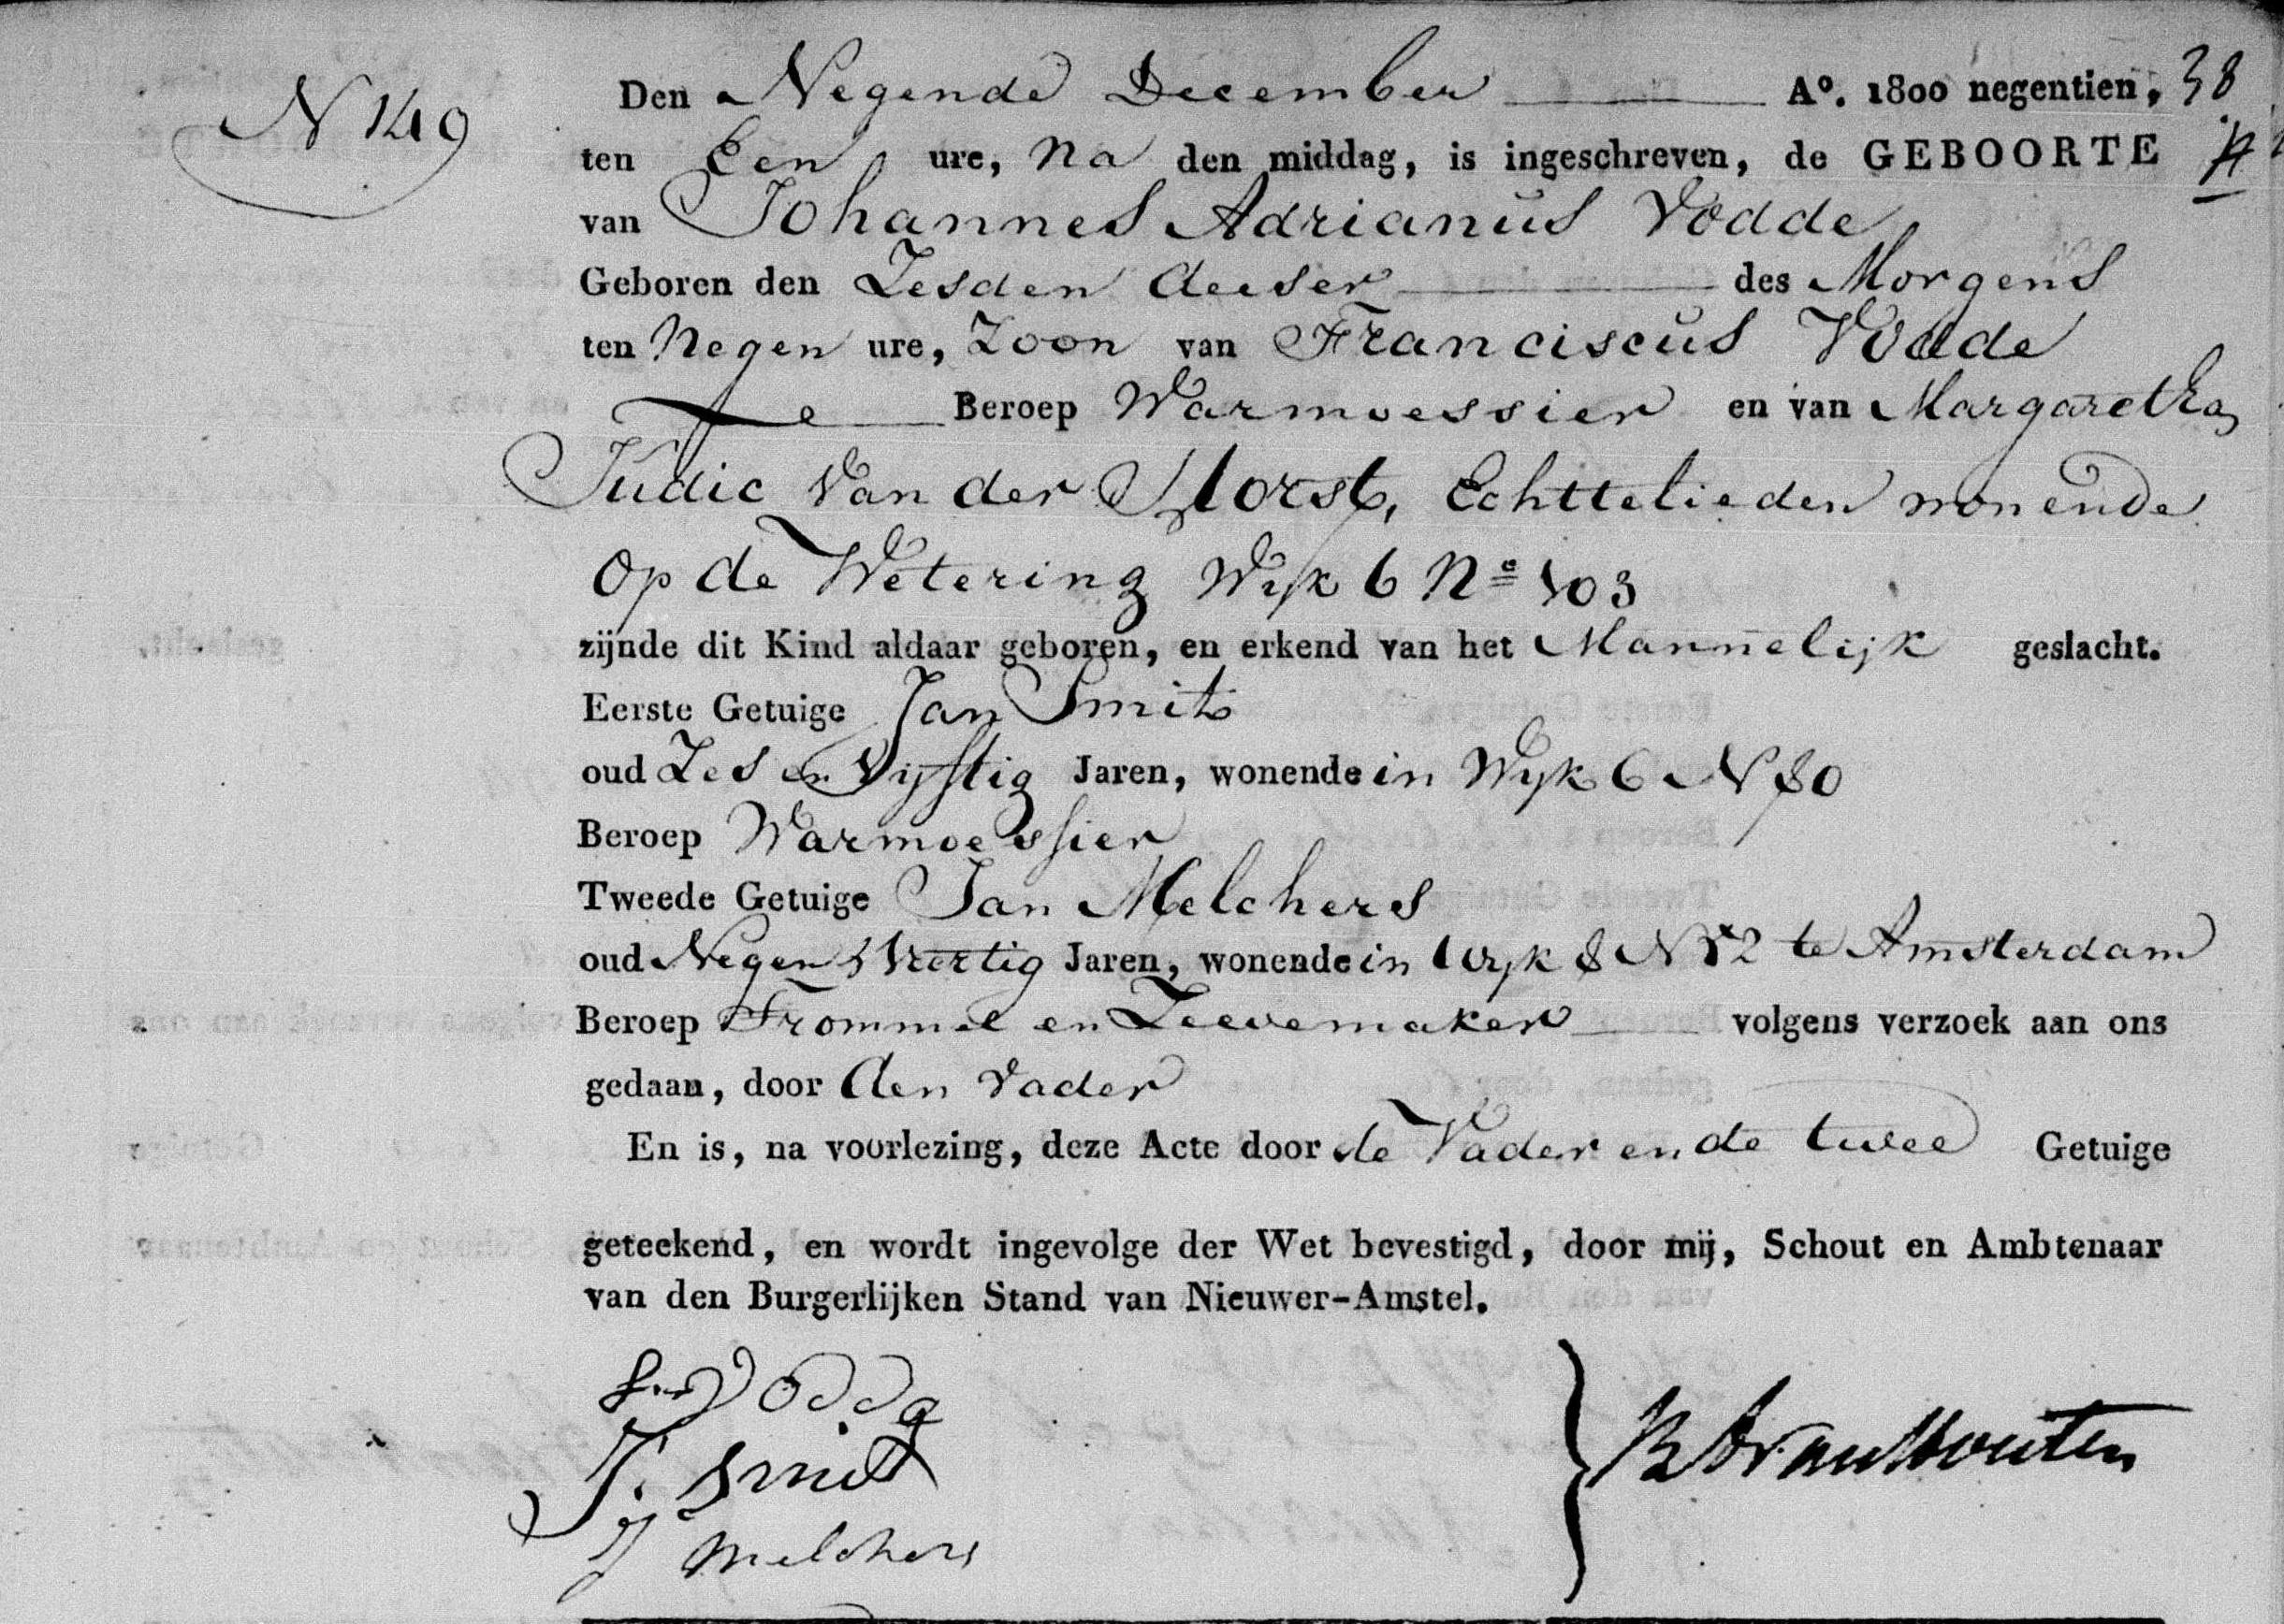 N 149
Den Negende December A°. 1800 negentien, 38
ten Een ure, na den middag, is ingeschreven, de GEBOORTE
van Johannes Adrianus Vodde
Geboren den Zesden deeser des Morgens
ten Negen ure, Zoon van Franciscus Vodde
Beroep Warmoessier en van Margaretha
Judic Van der Horst, Echttelieden wonende
op de Wetering Wyk 6 N° 103
zijnde dit Kind aldaar geboren, en erkend van het Mannelijk geslacht.
Eerste Getuige Jan Smit
oud Zes en Vijftig Jaren, wonende in Wyk 6 N 80
Beroep Warmoessier
Tweede Getuige Jan Melchers
oud Negen Jaren, wonende in Wyk & N 52 te Amsterdam
Beroep Trommel en Zeevemaker volgens verzoek aan ons
gedaan, door den Vader
En is, na voorlezing, deze Acte door de Vader en de twee Getuige
geteekend, en wordt ingevolge der Wet bevestigd, door mij, Schout en Ambtenaar
van den Burgerlijken Stand van Nieuwer-Amstel.
F. Vodde
J. Smit
J Melchers